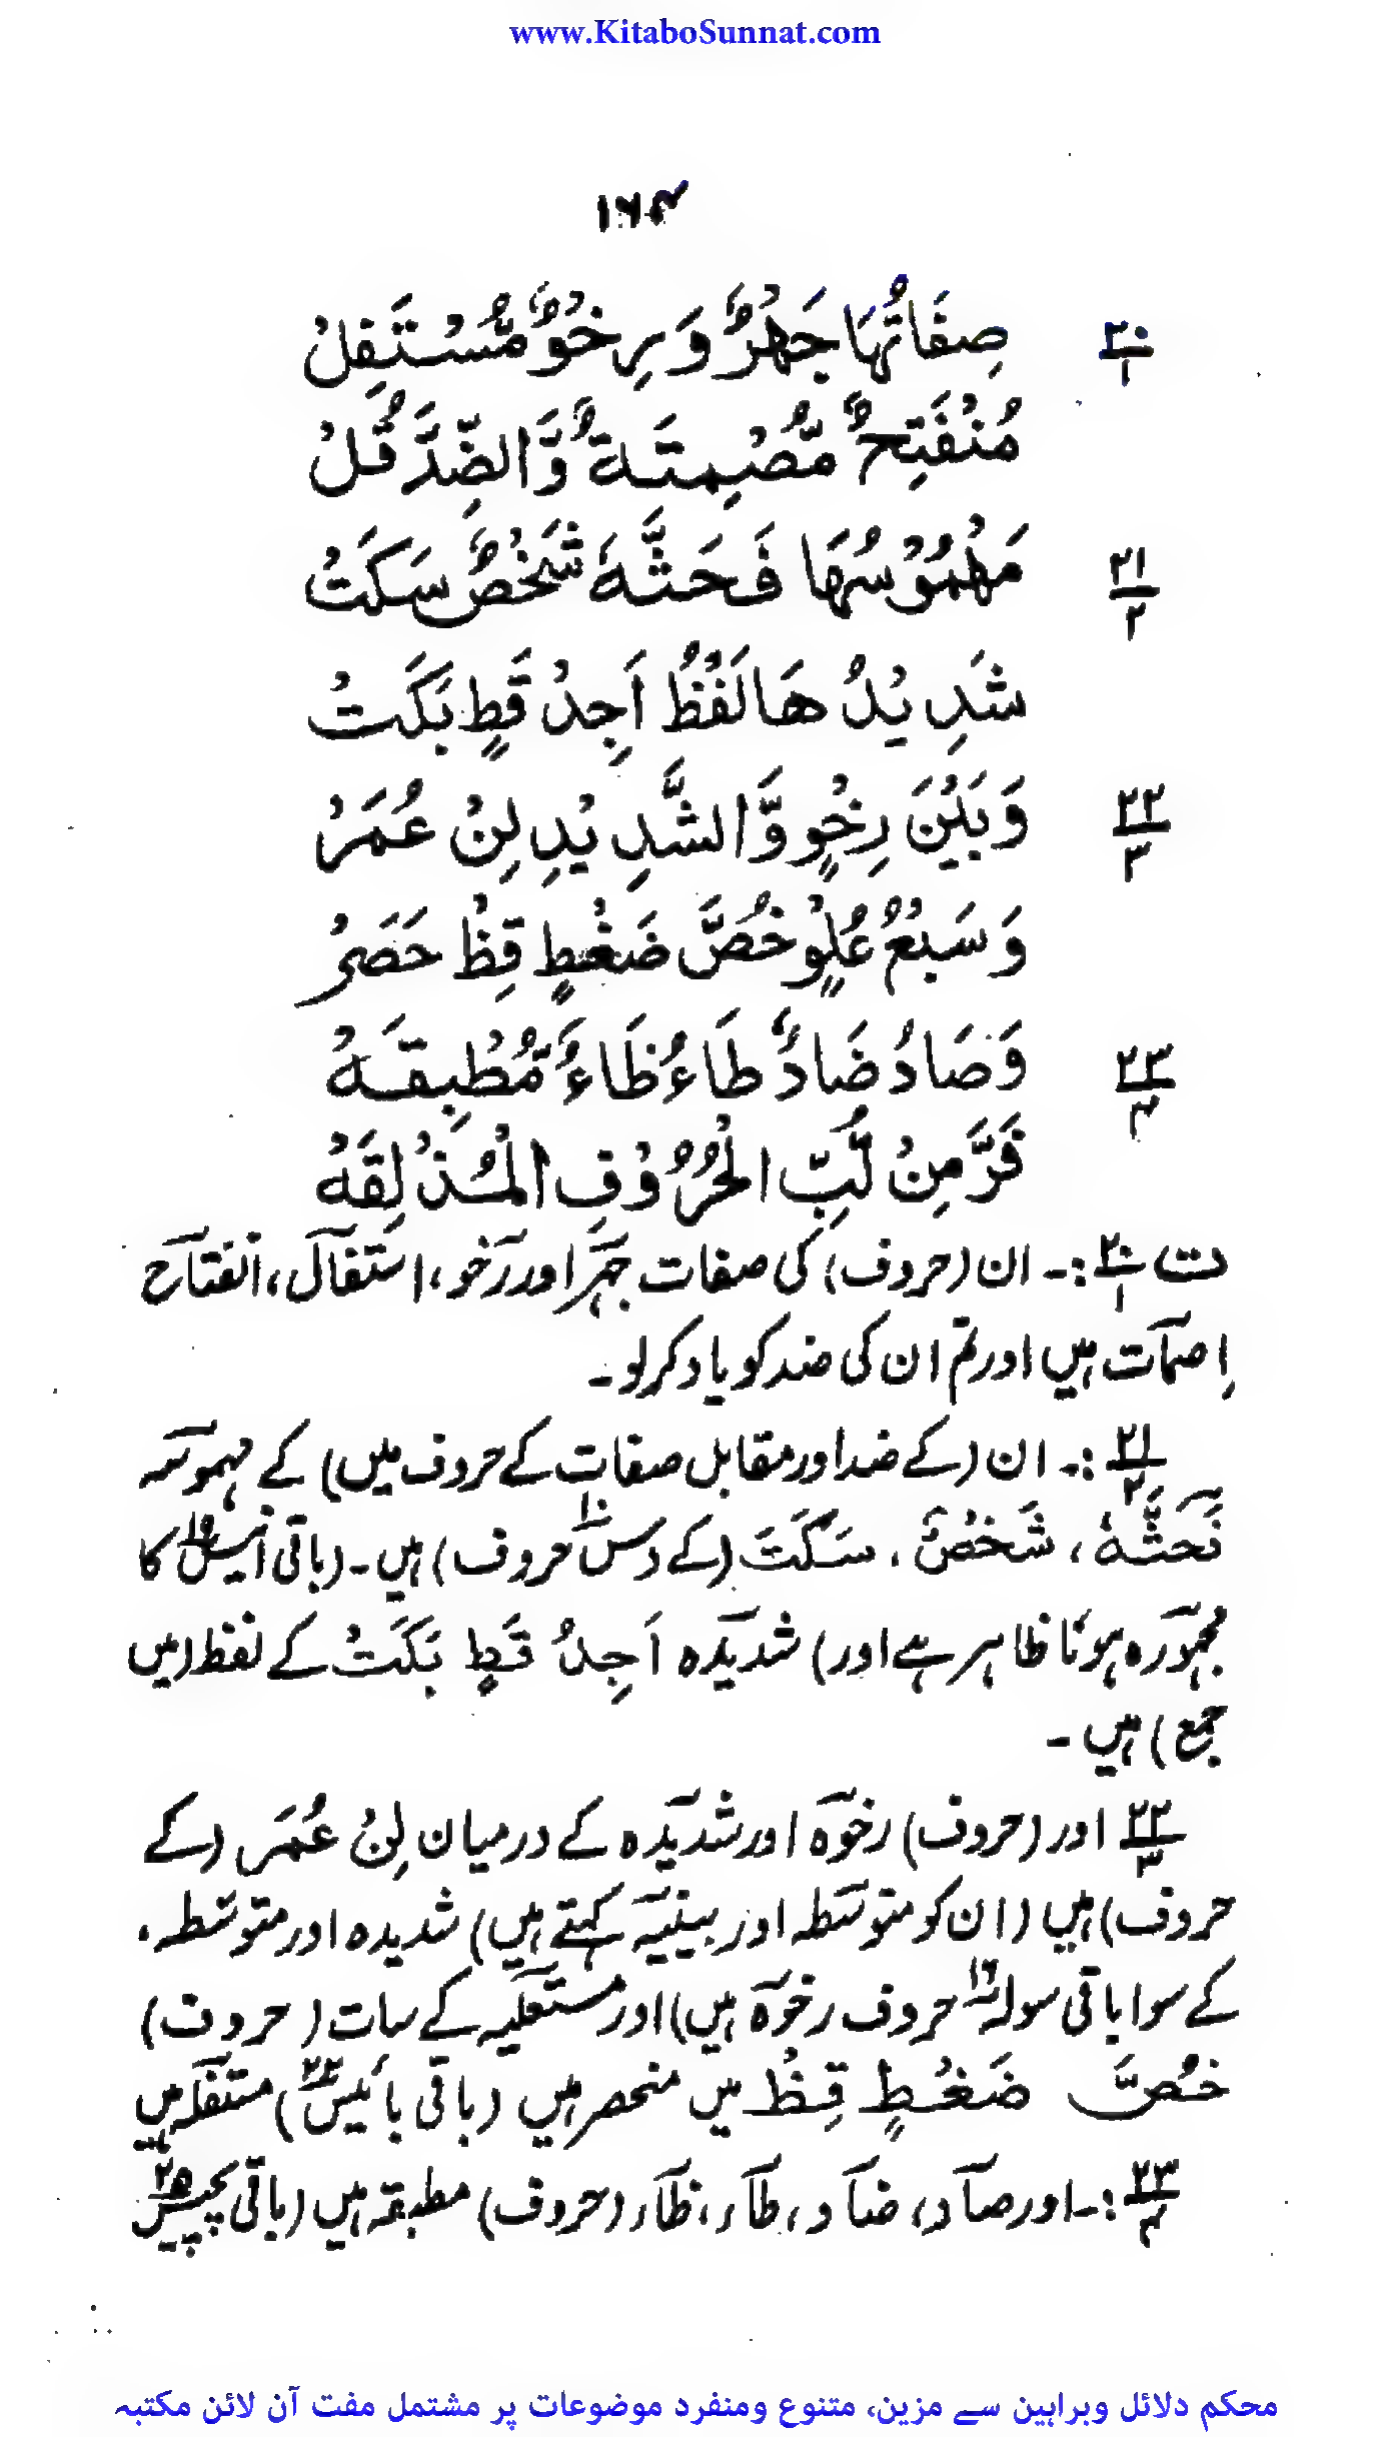 www.KitaboSunnat.com
۱۶۴
۲۰/۱ صِفَاتُهَا جَهْرٌ وَّ رِخْوٌ مُّسْتَفِلْ
مُنْفَتِحٌ مُّصْمِتَةٌ وَّالضِّدَّ قُلْ
۲۱/۲ مَهْمُوْسُهَا فَحَثَّهٗ شَخْصٌ سَكَتْ
شَدِيْدُهَا لَفْظُ اَجِدْ قَطٍ بَكَتْ
۲۲/۳ وَبَيْنَ رِخْوٍ وَّالشَّدِيْدِ لِنْ عُمَرْ
وَسَبْعُ عُلْوٍ خُصَّ ضَغْطٍ قِظْ حَصَرْ
۲۳/۴ وَصَادُ ضَادٌ طَاءُ ظَاءٌ مُّطْبِقَهْ
فَرَّ مِنْ لُّبِّ الْحُرُوْفِ الْمُذْلِقَهْ
ت ۲۰/۱ :۔ ان (حروف) کی صفات جہر اور رخو، استفال، انفتاح
اِصمات ہیں اور تم ان کی ضد کو یاد کرلو۔
۲۱/۲ :۔ ان (کے ضد اور مقابل صفات کے حروف میں) کے مہموسہ
فَحَثَّهٗ، شَخْصٌ، سَكَتَ (کے دس۱۰ حروف) ہیں۔ (باقی انیس۱۹ کا
مجہورہ ہونا ظاہر ہے اور) شدیدہ اَجِدْ قَطٍ بَكَتْ کے لفظ (میں
جمع) ہیں۔
۲۲/۳ اور (حروف) رخوہ اور شدیدہ کے درمیان لِنْ عُمَر (کے
حروف) ہیں (ان کو متوسطہ اور بینیہ کہتے ہیں) شدیدہ اور متوسطہ،
کے سوا باقی سولہ۱۶ حروف رخوہ ہیں) اور مستعلیہ کے سات (حروف)
خُصَّ ضَغْطٍ قِظْ میں منحصر ہیں (باقی بائیس۲۲) مستفلہ ہیں
۲۳/۴ :۔ اور صاد، ضاد، طاء، ظاء، (حروف) مطبقہ ہیں (باقی پچیس۲۵
محکم دلائل وبراہین سے مزین، متنوع ومنفرد موضوعات پر مشتمل مفت آن لائن مکتبہ